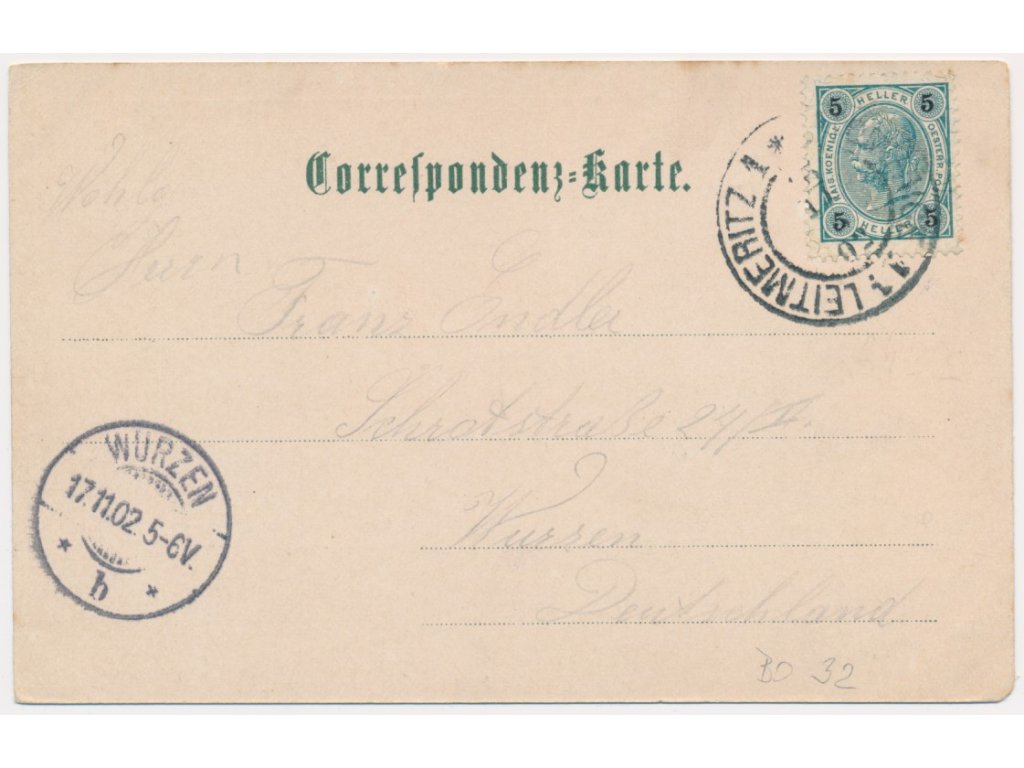 Correspondenz-Karte.
5 HELLER 5
KAIS. KOENIGL. OESTERR. POST
5 HELLER 5
LEITMERITZ 1 *
Herrn
Franz Endler
Schrotstraße 27/II.
Wurzen
Deutschland
WURZEN
17.11.02. 5-6V.
* b *
BO 32